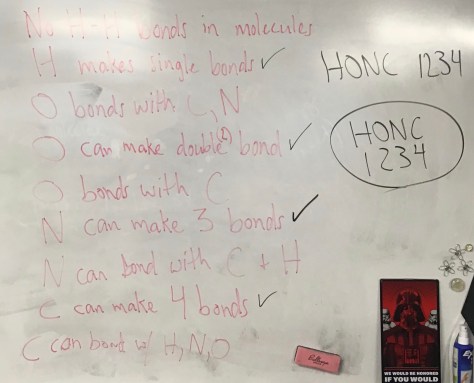 No H-H bonds in molecules
H makes single bonds ✓
O bonds with C, N
O can make double (2) bond ✓
O bonds with C
N can make 3 bonds ✓
N can bond with C + H
C can make 4 bonds ✓
C can bond w/ H, N, O
HONC 1234
HONC
1234
WE WOULD BE HONORED
IF YOU WOULD